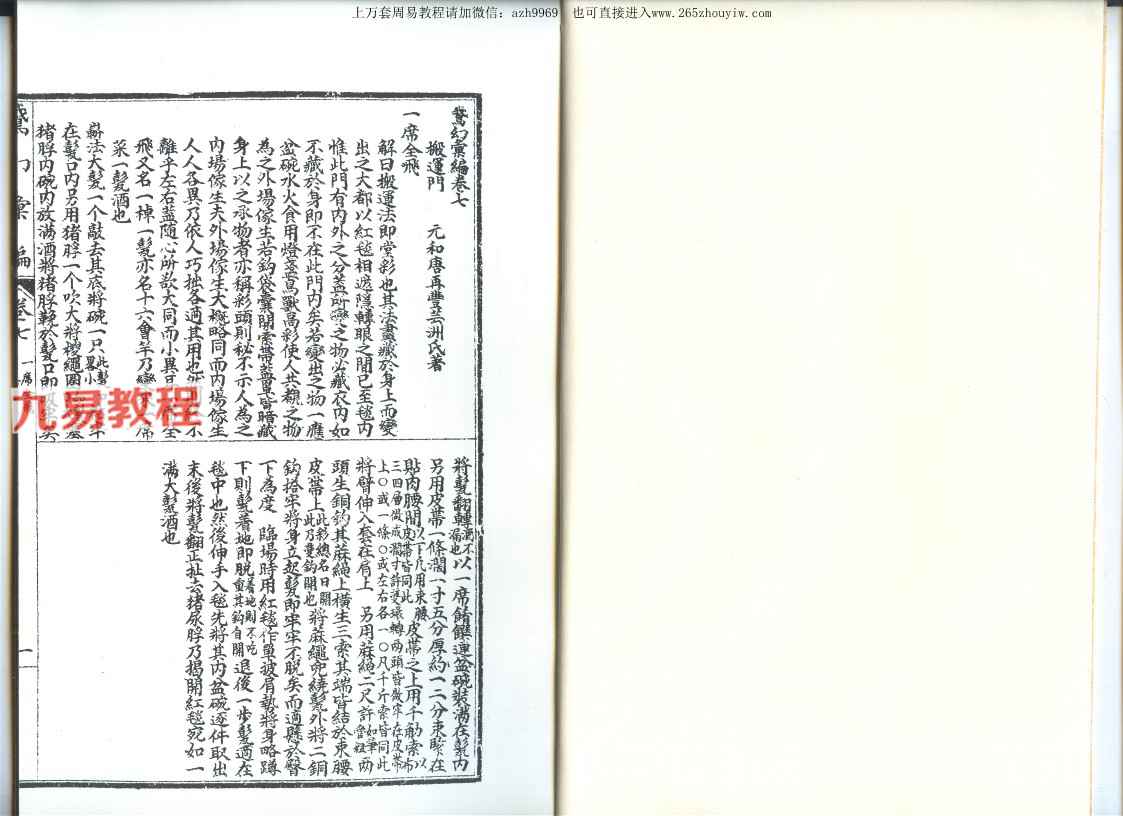 上万套周易教程请加微信：azh9969 也可直接进入www.265zhouyiw.com
鵞幻彙編卷七
搬運門 元和唐再豐芸洲氏著
一席全飛
解曰搬運法即堂彩也其法盡藏於身上而變
出之大都以紅毯相遮隱轉眼之間已至毯內
惟此門有內外之分蓋所變之物必藏衣內如
不藏於身即不在此門內矣若變出之物一應
盆碗水火食用燈臺鳥獸爲彩使人共覩之物
為之外場傢生若鈎袋囊開索帶藍罩皆暗藏
身上以之承物者亦稱彩頭則秘不示人為之
內場傢生夫外場傢生大概略同而內場傢生
人人各異乃依人巧拙各適其用也 小
離乎左右蓋隨心所欲大同而小異 全
飛又名一棹一甏亦名十六會竿乃變 席
菜一甏酒也
嶄法大甏一个敲去其底將碗一只此甏 畧小
在甏口內另用猪脬一个吹大將椶繩
猪脬內碗內放滿酒將猪脬 於甏口即
將甏翻轉酒不漏也以一席餚饌連盆碗裝滿在甏內
另用皮帶一條濶一寸五分厚約一二分束緊在
貼肉腰間以下凡用束腰皮帶皆同此皮帶之上用千觔索以布
三四層做成濶寸許 轉兩頭皆做牢在皮帶
上〇或一條〇或左右各一〇凡千斤索皆同此
將臂伸入套在肩上 另用蔴繩二尺許如筆管粗兩
頭生銅鈎其蔴繩上橫生三索其端皆結於束腰
皮帶上此彩總名曰開此乃雙鈎開也將蔴繩兜繞甏外將二銅
鈎搭牢將身立起甏即牢牢不脫矣而適懸於臀
下為度 臨場時用紅毯作單披肩勢將身略蹲
下則甏著地即脫著地則不吃重其鈎自開退後一步甏適在
毯中也然後伸手入毯先將其內盆碗逐件取出
末後將甏翻正扯去猪尿脬乃揭開紅毯宛如一
滿大甏酒也
鵞幻彙編 卷七 一席
一
九易教程